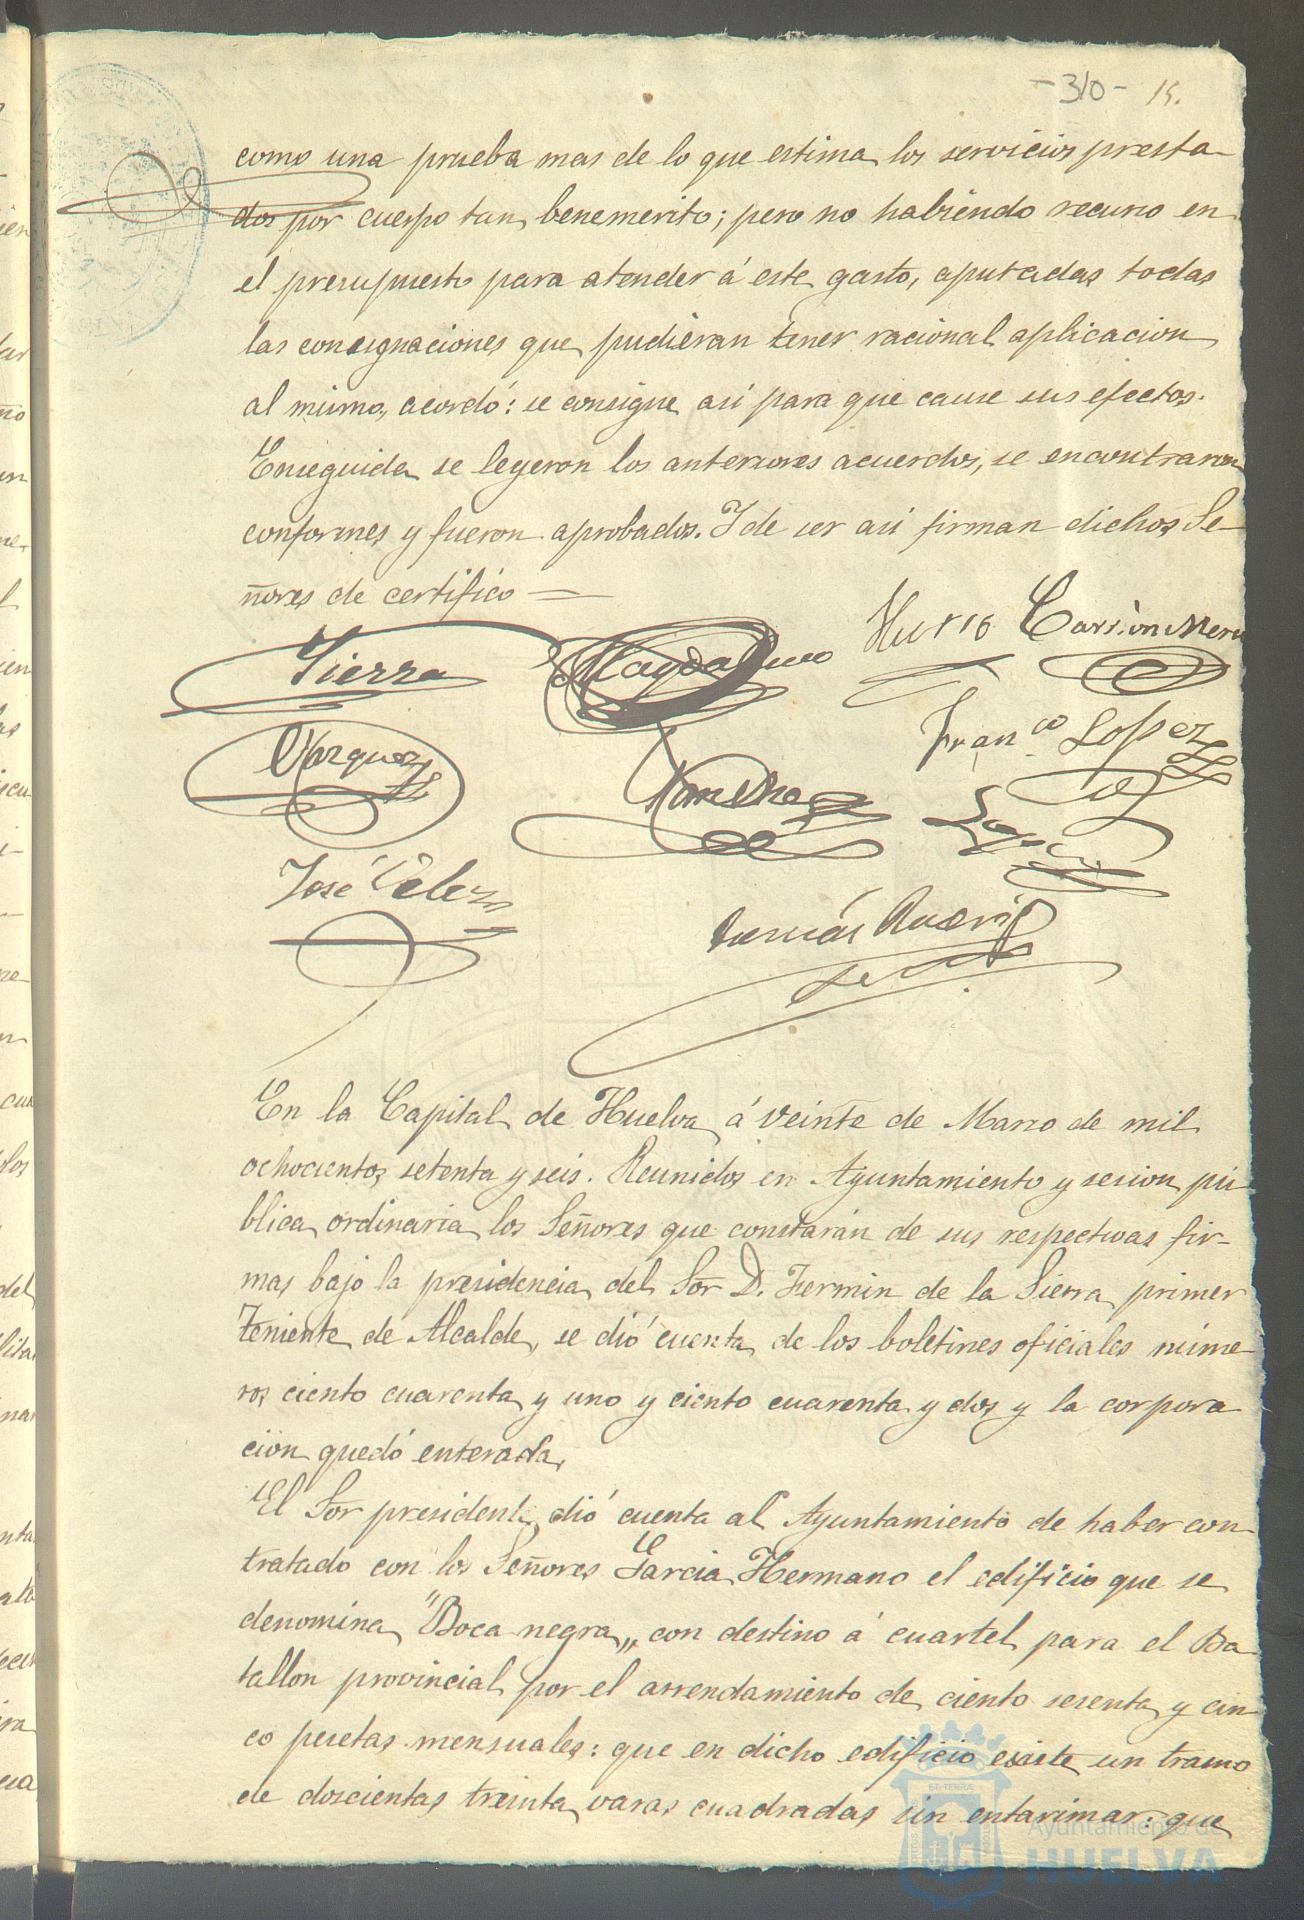 -310- 15.
como una prueba mas de lo que estima los servicios presta-
dos por cuerpo tan benemerito; pero no habiendo recurso en
el presupuesto para atender á este gasto, aputadas todas
las consignaciones que pudieran tener racional aplicacion
al mismo, acordó: se consigne asi para que cause sus efectos.
Enseguida se leyeron los anteriores acuerdos, se encontraron
conformes y fueron aprobados. Y de ser asi firman dichos Se-
ñores de certifico —
Sierra Magdaleno Carrion
Vazquez Sanchez Fran.co Lopez
Lopez
José Velez
En la Capital de Huelva á veinte de Marzo de mil
ochocientos setenta y seis. Reunidos en Ayuntamiento y sesion pú
blica ordinaria los Señores que constarán de sus respectivas fir-
mas bajo la presidencia del Sor D. Fermin de la Sierra primer
Teniente de Alcalde, se dió cuenta de los boletines oficiales núme-
ros ciento cuarenta y uno y ciento cuarenta y dos y la corpora
cion quedó enterada.
El Sor presidente dió cuenta al Ayuntamiento de haber con-
tratado con los Señores Garcia Hermano el edificio que se
denomina "Boca negra„ con destino á cuartel para el Ba
tallon provincial por el arrendamiento de ciento sesenta y cin
co pesetas mensuales: que en dicho edificio existe un tramo
de doscientas treinta varas cuadradas sin entarimar: que
Ayuntamiento de
HUELVA